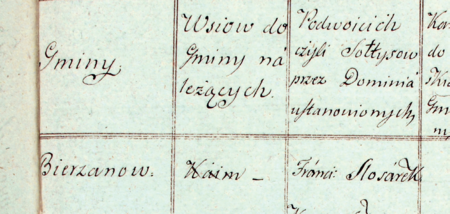 Gminy
Wsiow do
Gminy ná
leżących.
Podwoicich
czyli Sołtysow
przez Dominia
ustanowionych,
do
Bierzanow.
Kaim –
Franci: Slosárek